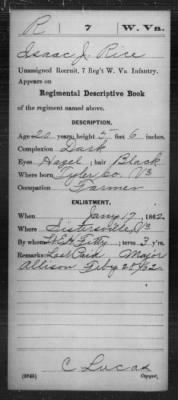 R 7 W. Va.
Isaac J. Rice
Unassigned Recruit, 7 Reg't W. Va. Infantry.
Appears on
Regimental Descriptive Book
of the regiment named above.
DESCRIPTION.
Age 20 years; height 5 feet 6 inches.
Complexion Dark
Eyes Hazel; hair Black
Where born Tyler Co. Va
Occupation Farmer
ENLISTMENT.
When Jany 17, 1862.
Where Sistersville, Va
By whom term 3 y'rs.
Remarks: Last Paid Major
Allison Feby 28/62
C Lucas
Copyist.